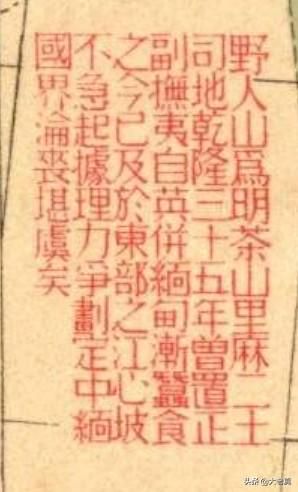 野人山爲明茶山里麻二土
司地乾隆三十五年曾置正
副撫夷自英併緬甸漸蠶食
之今已及於東部之江心坡
不急起據理力爭劃定中緬
國界淪喪堪虞矣
头条